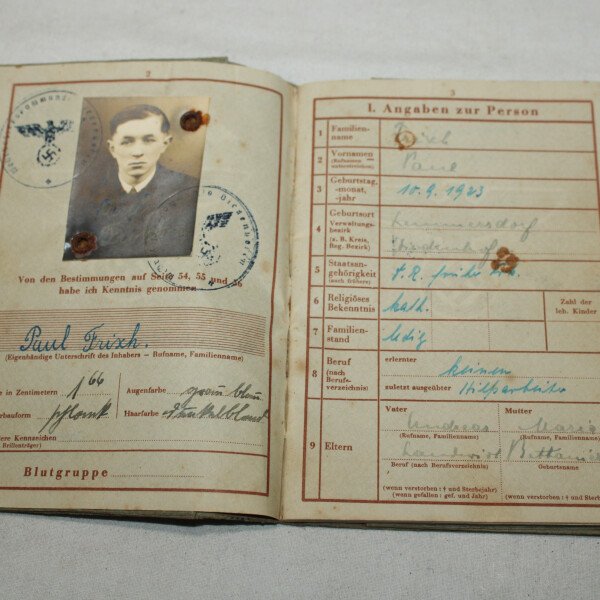 2
Von den Bestimmungen auf Seite 54, 55 und 56
habe ich Kenntnis genommen
Paul Frixh.
(Eigenhändige Unterschrift des Inhabers — Rufname, Familienname)
e in Zentimetern 1 66 Augenfarbe grau blau
erbauform schlank Haarfarbe dunkelblond
dere Kennzeichen
Brillenträger)
Blutgruppe
3
I. Angaben zur Person
1 Familien-
name
2 Vornamen Paul
(Rufnamen
unterstreichen)
3 Geburtstag, 10. 9. 1923
-monat,
-jahr
4 Geburtsort
Verwaltungs-
bezirk
(z. B. Kreis,
Reg. Bezirk)
5 Staatsan-
gehörigkeit
(auch früher)
D. R. früher
6 Religiöses kath. Zahl der
Bekenntnis leb. Kinder
7 Familien- ledig
stand
8 Beruf
(nach
Berufs-
verzeichnis)
erlernter
keinen
zuletzt ausgeübter Hilfsarbeiter
9 Eltern
Vater Mutter
Andreas Marie
(Rufname, Familienname) (Rufname, Familienname)
Landwirt
Beruf (nach Berufsverzeichnis) Geburtsname
(wenn verstorben: † und Sterbejahr)
(wenn gefallen: gef. und Jahr)
(wenn verstorben: † und Sterbejahr)